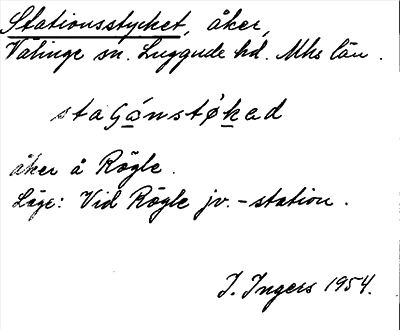 Stationsstycket, åker,
Välinge sn. Luggude hd. Mhs län.
staʃónstǿkad
åker å Rögle.
Läge: Vid Rögle jv.-station.
I. Ingers 1954.